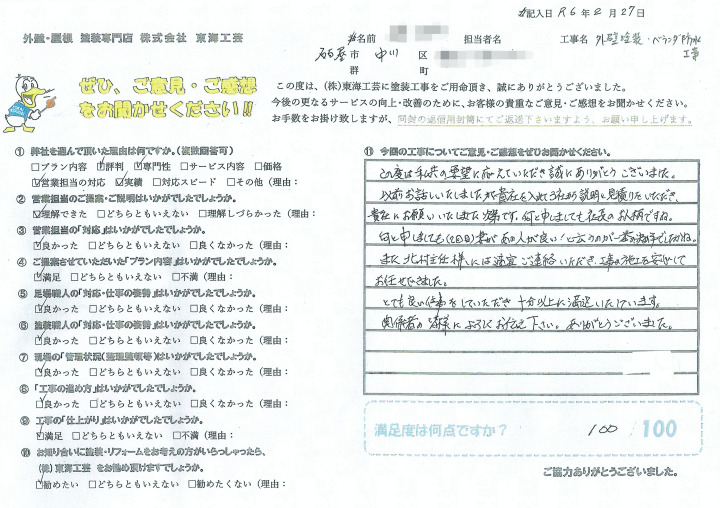 記入日 R6年2月27日
外壁・屋根 塗装専門店 株式会社 東海工芸
お名前
担当者名
工事名 外壁塗装・ベランダ防水
工事
名古屋市 中川 区
郡 町
ぜひ、ご意見・ご感想
をお聞かせください!!
この度は、(株)東海工芸に塗装工事をご用命頂き、誠にありがとうございました。
今後の更なるサービスの向上・改善のために、お客様の貴重なご意見・ご感想をお聞かせください。
お手数をお掛け致しますが、同封の返信用封筒にてご返送下さいますよう、お願い申し上げます。
① 弊社を選んで頂いた理由は何ですか。(複数回答可)
□プラン内容 ☑評判 ☑専門性 □サービス内容 □価格
☑営業担当の対応 ☑実績 □対応スピード □その他(理由:
② 営業担当のご提案・ご説明はいかがでしたでしょうか。
☑理解できた □どちらともいえない □理解しづらかった(理由:
③ 営業担当の「対応」はいかがでしたでしょうか。
☑良かった □どちらともいえない □良くなかった(理由:
④ ご提案させていただいた「プラン内容」はいかがでしたでしょうか。
☑満足 □どちらともいえない □不満(理由:
⑤ 足場職人の「対応・仕事の姿勢」はいかがでしたでしょうか。
☑良かった □どちらともいえない □良くなかった(理由:
⑥ 塗装職人の「対応・仕事の姿勢」はいかがでしたでしょうか。
☑良かった □どちらともいえない □良くなかった(理由:
⑦ 現場の「管理状況(整理整頓等)」はいかがでしたでしょうか。
☑良かった □どちらともいえない □良くなかった(理由:
⑧ 「工事の進め方」はいかがでしたでしょうか。
☑良かった □どちらともいえない □良くなかった(理由:
⑨ 工事の「仕上がり」はいかがでしたでしょうか。
☑満足 □どちらともいえない □不満(理由:
⑩ お知り合いに塗装・リフォームをお考えの方がいらっしゃったら、
(株)東海工芸 をお勧め頂けますでしょうか。
☑勧めたい □どちらともいえない □勧めたくない(理由:
⑪ 今回の工事についてご意見・ご感想をぜひお聞かせください。
この度は私共の要望に応えていただき誠にありがとうございました。
以前お話しいたしましたが貴社を入れて3社から説明と見積りをいただき、
貴社にお願いいたしました次第です。何と申しましても社長のお人柄ですね。
何と申しましても(2回目)妻があの人が良い!と云うのが一番の決め手でしたね。
また、北村主任様には適宜ご連絡いただき、工事の施工を安心して
お任せできました。
とても良い仕事をしていただき十分以上に満足いたしています。
関係者の皆様によろしくお伝え下さい。ありがとうございました。
満足度は何点ですか? 100/100
ご協力ありがとうございました。